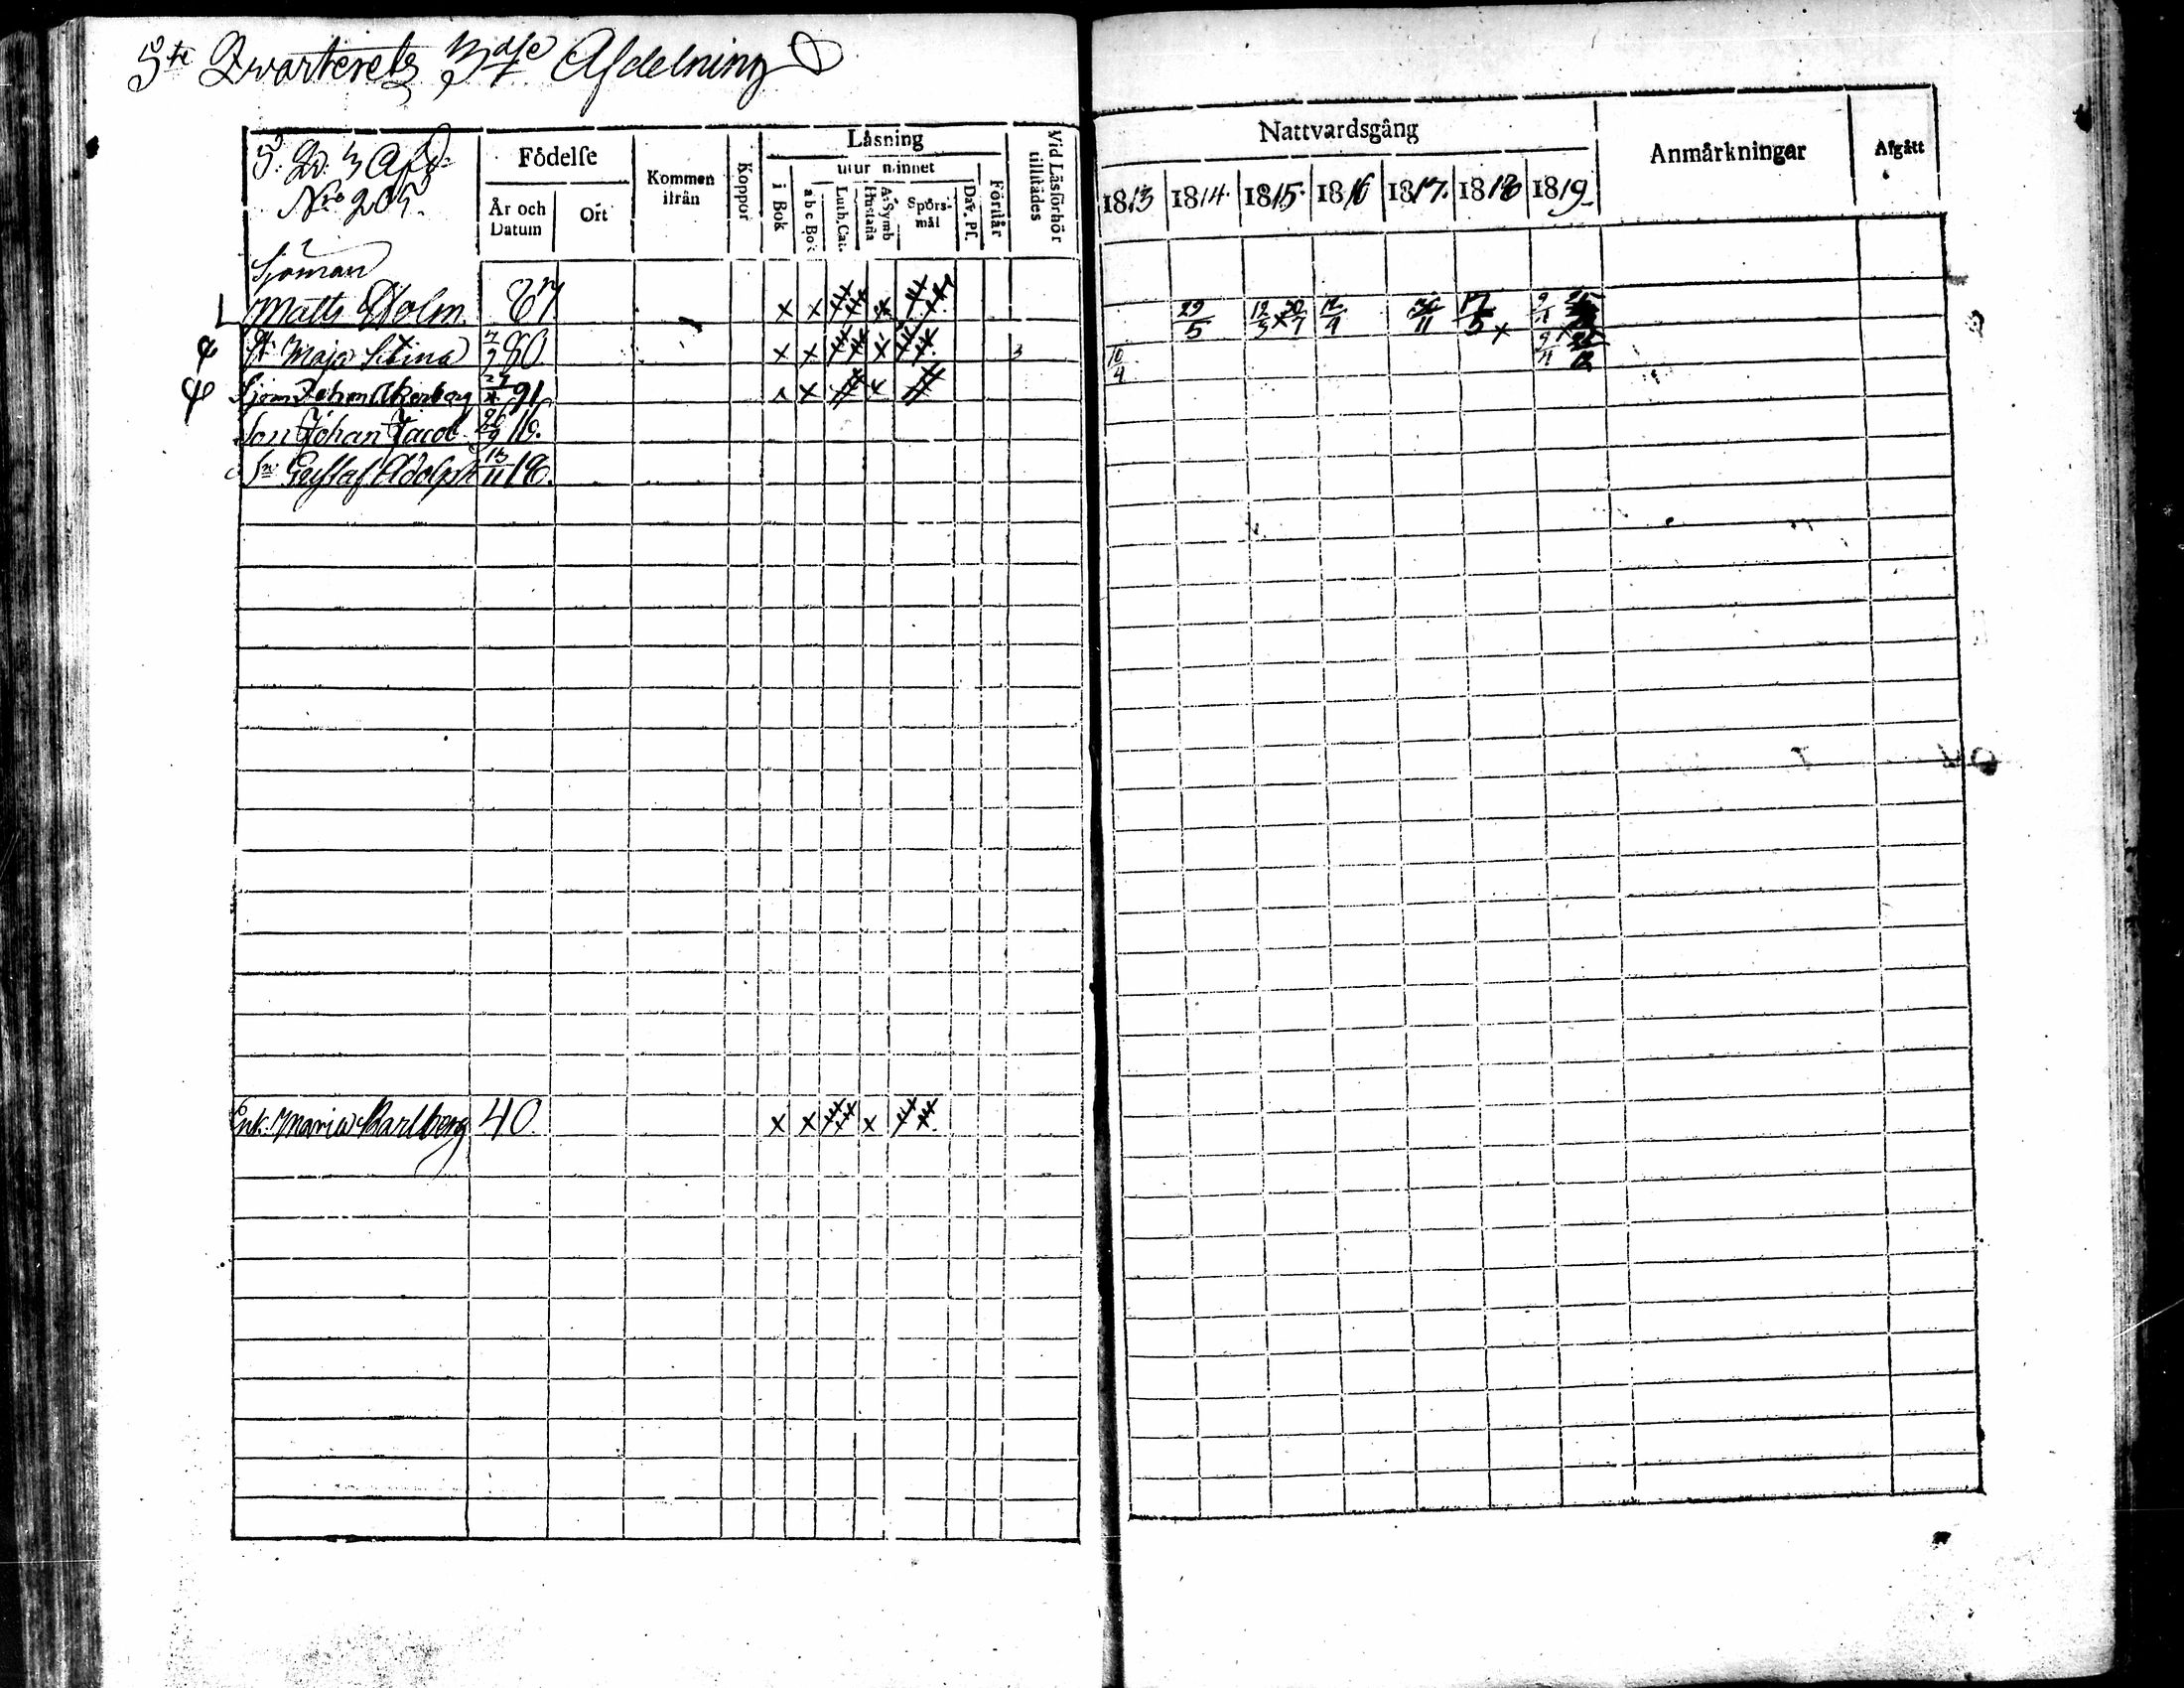 5te Qwarterets 3dje Afdelning
5: Qv. 3 Afd:
Nro 205.
Födelse
År och Datum
Ort
Kommen ifrån
Koppor
Läsning
utur minnet
i Bok
abc Bok
Luth. Cat.
Hustafla
A: Symb
Spörsmål
Dav. Ps.
Förstår
Vid Läsförhör tillstädes
Nattvardsgång
1813 1814. 1815. 1816 1817. 1818 1819
Anmärkningar
Afgått
Sjöman
Matts Holm 67 x x x 29/5 12/3 x 30/7 12/9 30/11 17/5 x
H: Maja Stina 7/9 80 x x x 3 10/4
Sjöm Johan Åkerberg 91 x x x
Son Johan Jacob 26/9 16.
Sn Gustaf Adolph 13/11 18.
Enk: Maria Karlberg 40 x x x